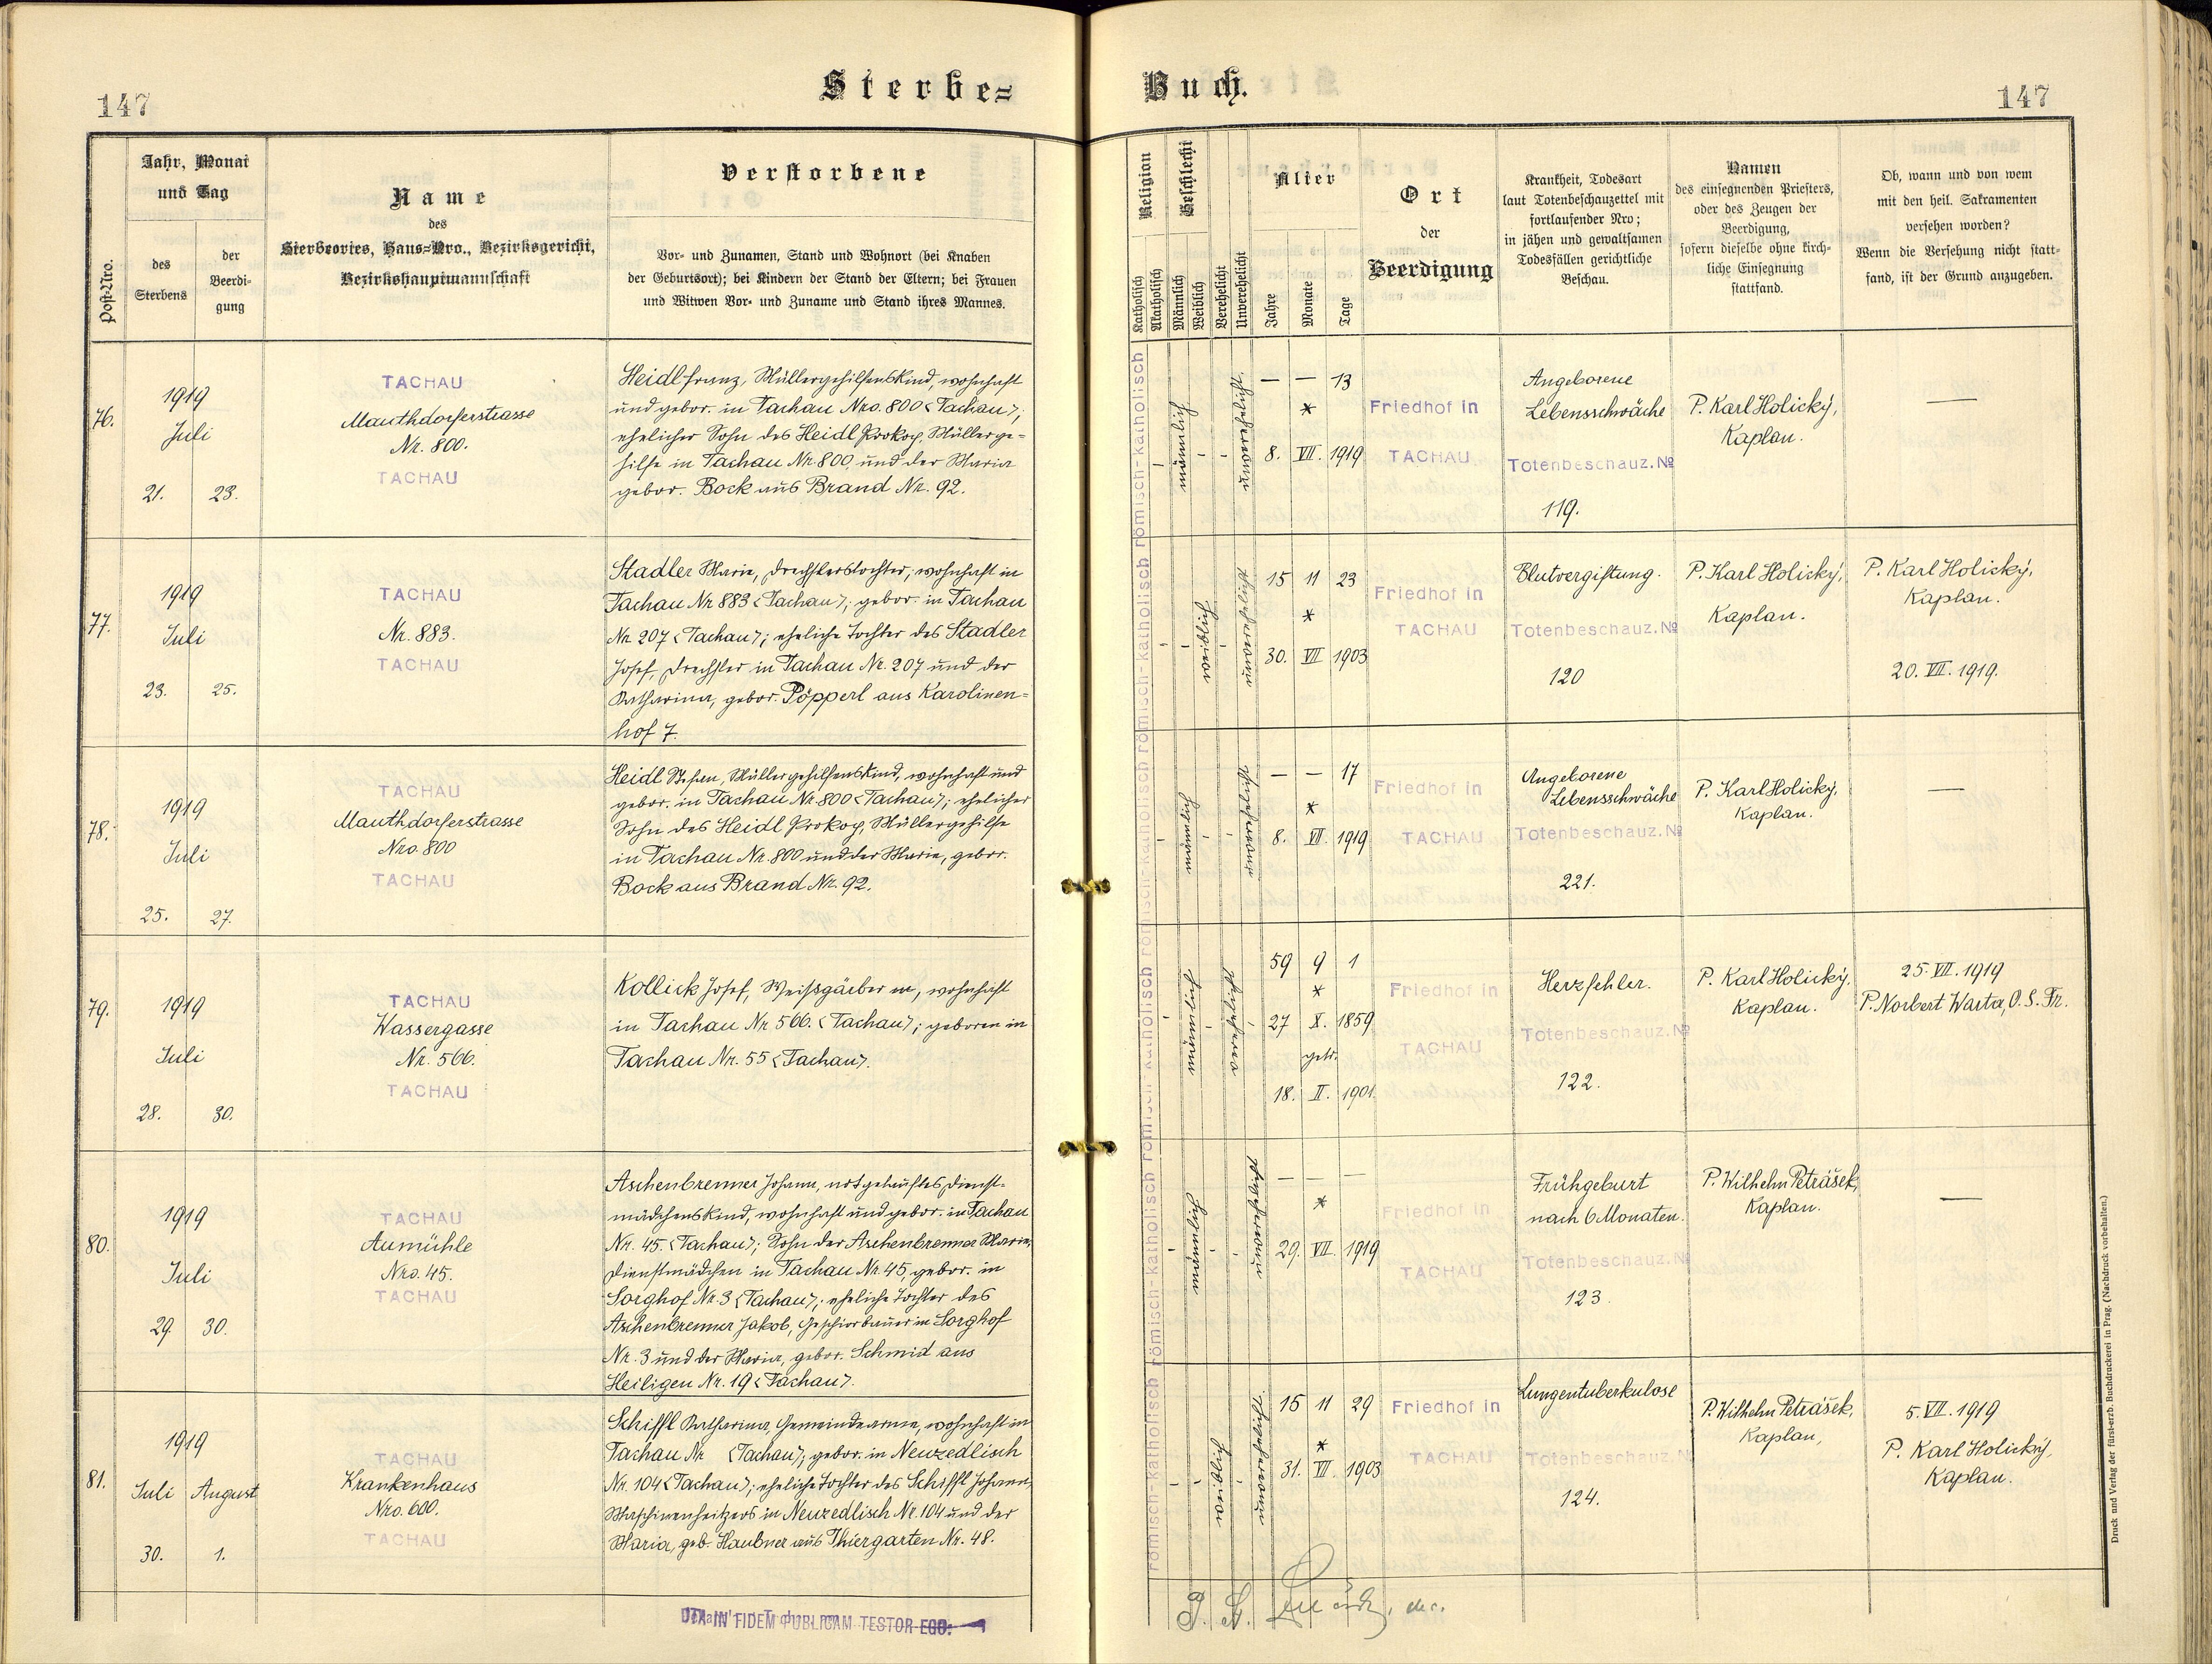 147
Sterbe=
Buch.
147
Post-Nro.
Jahr, Monat
und Tag
des
Sterbens
der
Beerdi-
gung
Name
des
Sterbeortes, Haus=Nro., Bezirksgericht,
Bezirkshauptmannschaft
Verstorbene
Vor- und Zunamen, Stand und Wohnort (bei Knaben
der Geburtsort); bei Kindern der Stand der Eltern; bei Frauen
und Witwen Vor- und Zuname und Stand ihres Mannes.
Religion
Katholisch
Akatholisch
Geschlecht
Männlich
Weiblich
Verehelicht
Unverehelicht
Alter
Jahre
Monate
Tage
Ort
der
Beerdigung
Krankheit, Todesart
laut Totenbeschauzettel mit
fortlaufender Nro;
in jähen und gewaltsamen
Todesfällen gerichtliche
Beschau.
Namen
des einsegnenden Priesters,
oder des Zeugen der
Beerdigung,
sofern dieselbe ohne kirch-
liche Einsegnung
stattfand.
Ob, wann und von wem
mit den heil. Sakramenten
versehen worden?
Wenn die Versehung nicht statt-
fand, ist der Grund anzugeben.
76.
1919
Juli
21. 23.
TACHAU
Mauthdorferstrasse
Nr. 800.
TACHAU
Heidl Franz, Müllergehilfenskind, wohnhaft
und gebor. in Tachau Nro. 800 <Tachau>;
ehelicher Sohn des Heidl Prokop, Müllerge-
hilfe in Tachau Nr. 800, und der Maria
gebor. Bock aus Brand Nr. 92.
römisch-katholisch
männlich
unverehelicht
— — 13
*
8. VII. 1919
Friedhof in
TACHAU
Angeborene
Lebensschwäche
Totenbeschauz. No
119.
P. Karl Holický,
Kaplan.
—
77.
1919
Juli
23. 25.
TACHAU
Nr. 883.
TACHAU
Stadler Marie, Drechslerstochter, wohnhaft in
Tachau Nr 883 <Tachau>; gebor. in Tachau
Nr. 207 <Tachau>; eheliche Tochter des Stadler
Josef, Drechsler in Tachau Nr. 207 und der
Katharina, gebor. Pöpperl aus Karolinen-
hof 7.
römisch-katholisch
weiblich
unverehelicht
15 11 23
*
30. VII 1903
Friedhof in
TACHAU
Blutvergiftung.
Totenbeschauz. No
120
P. Karl Holický,
Kaplan.
P. Karl Holický,
Kaplan.
20. VII. 1919.
78.
1919
Juli
25. 27.
TACHAU
Mauthdorferstrasse
Nro. 800
TACHAU
Heidl Stefan, Müllergehilfenskind, wohnhaft und
gebor. in Tachau Nr. 800 <Tachau>; ehelicher
Sohn des Heidl Prokop, Müllergehilfe
in Tachau Nr. 800 und der Marie, gebor.
Bock aus Brand Nr. 92.
römisch-katholisch
männlich
unverehelicht
— — 17
*
8. VII. 1919
Friedhof in
TACHAU
Angeborene
Lebensschwäche
Totenbeschauz. No
221.
P. Karl Holický,
Kaplan.
—
79.
1919
Juli
28. 30.
TACHAU
Wassergasse
Nr. 566.
TACHAU
Kollick Josef, Weißgärber m, wohnhaft
in Tachau Nr 566. <Tachau>; geboren in
Tachau Nr. 55 <Tachau>.
römisch-katholisch
männlich
verehelicht
59 9 1
*
27 X. 1859
getr.
18. II. 1901.
Friedhof in
TACHAU
Herzfehler.
Totenbeschauz. No
122.
P. Karl Holický,
Kaplan.
25. VII. 1919
P. Norbert Warta, O. S. Fr.
80.
1919
Juli
29. 30.
TACHAU
Aumühle
Nro. 45.
TACHAU
Aschenbrenner Johann, notgetauftes Dienst-
mädchenskind, wohnhaft und gebor. in Tachau
Nr. 45. <Tachau>; Sohn der Aschenbrenner Marie,
Dienstmädchen in Tachau Nr. 45, gebor. in
Sorghof Nr. 3 <Tachau>; eheliche Tochter des
Aschenbrenner Jakob, Geschirrbauer in Sorghof
Nr. 3 und der Maria, gebor. Schmid aus
Heiligen Nr. 19 <Tachau>.
römisch-katholisch
männlich
unverehelicht
— — —
*
29. VII. 1919
Friedhof in
TACHAU
Frühgeburt
nach 6 Monaten.
Totenbeschauz. No
123.
P. Wilhelm Petrášek,
Kaplan.
—
81.
1919
Juli August
30. 1.
TACHAU
Krankenhaus
Nro. 600.
TACHAU
Schiffl Katharina, Gemeindearme, wohnhaft in
Tachau Nr <Tachau>; gebor. in Neuzedlisch
Nr. 104 <Tachau>; eheliche Tochter des Schiffl Johann,
Maschinenheitzers in Neuzedlisch Nr. 104 und der
Maria, geb. Haubner aus Thiergarten Nr. 48.
römisch-katholisch
weiblich
unverehelicht
15 11 29
*
31. VII. 1903
Friedhof in
TACHAU
Lungentuberkulose
Totenbeschauz. No
124.
P. Wilhelm Petrášek,
Kaplan,
5. VII. 1919
P. Karl Holický,
Kaplan.
IN FIDEM PUBLICAM TESTOR EGO:
Druck und Verlag der fürst-erzb. Buchdruckerei in Prag. (Nachdruck vorbehalten.)